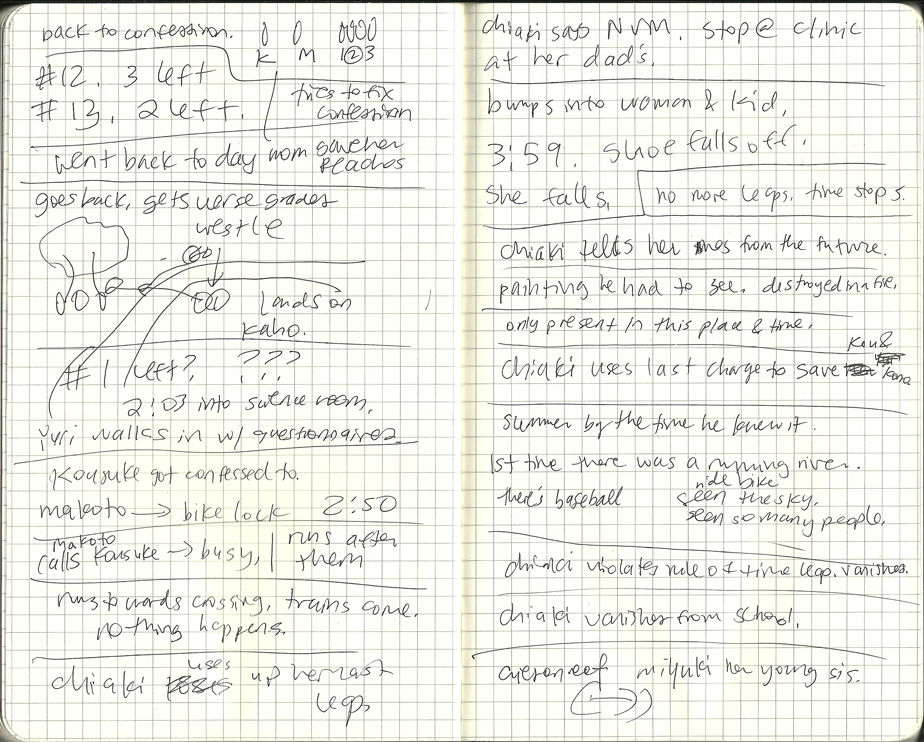 back to confession.
K M 1 2 3
#12. 3 left
#13. 2 left.
tries to fix
confession
went back to day mom gave her
peaches
goes back, gets worse grades
westle
lands on
kaho.
#1 left? ???
2:03 into science room.
Yuri walks in w/ questionaires
Kousuke got confessed to.
makoto → bike lock 2:50
makoto
calls Kousuke → busy,
runs after
them
runs towards crossing, trains come.
nothing happens.
chiaki uses up her last
leaps
chiaki says NVM. stop @ clinic
at her dad's.
bumps into woman & kid,
3:59. shoe falls off.
She falls,
no more leaps, time stops.
chiaki tells her from the future.
painting he had to see. destroyed in a fire.
only present in this place & time.
Kou&
chiaki uses last charge to save
summer by the time he knew it.
1st time there was a running river.
ride bike
there's baseball seen the sky.
seen so many people.
violates rule of time leap. vanishes.
chiaki vanishes from school.
miyuki her young sis.